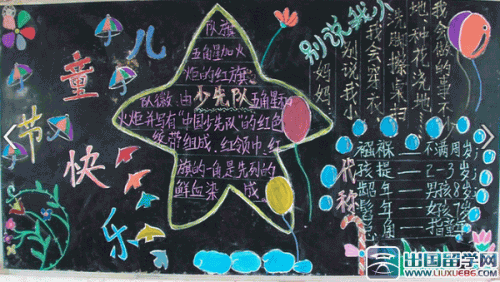 儿
童
节
快
乐
队旗
五角星加火
炬的红旗
队徽:由少先队五角星加
火炬并写有"中国少先队"的红色
绶带组成,红领巾:红
旗的一角是先烈的
鲜血染 成
别说我小
妈妈,别说我小
我会穿衣
洗脚擦桌
地,种花浇地
我会做的事不少
代称
襁褓——不满周岁
孩提——2-3岁
龆年——男孩8岁
髫年——女孩7岁
总角——
出国留学网
WWW.LIUXUE86.COM